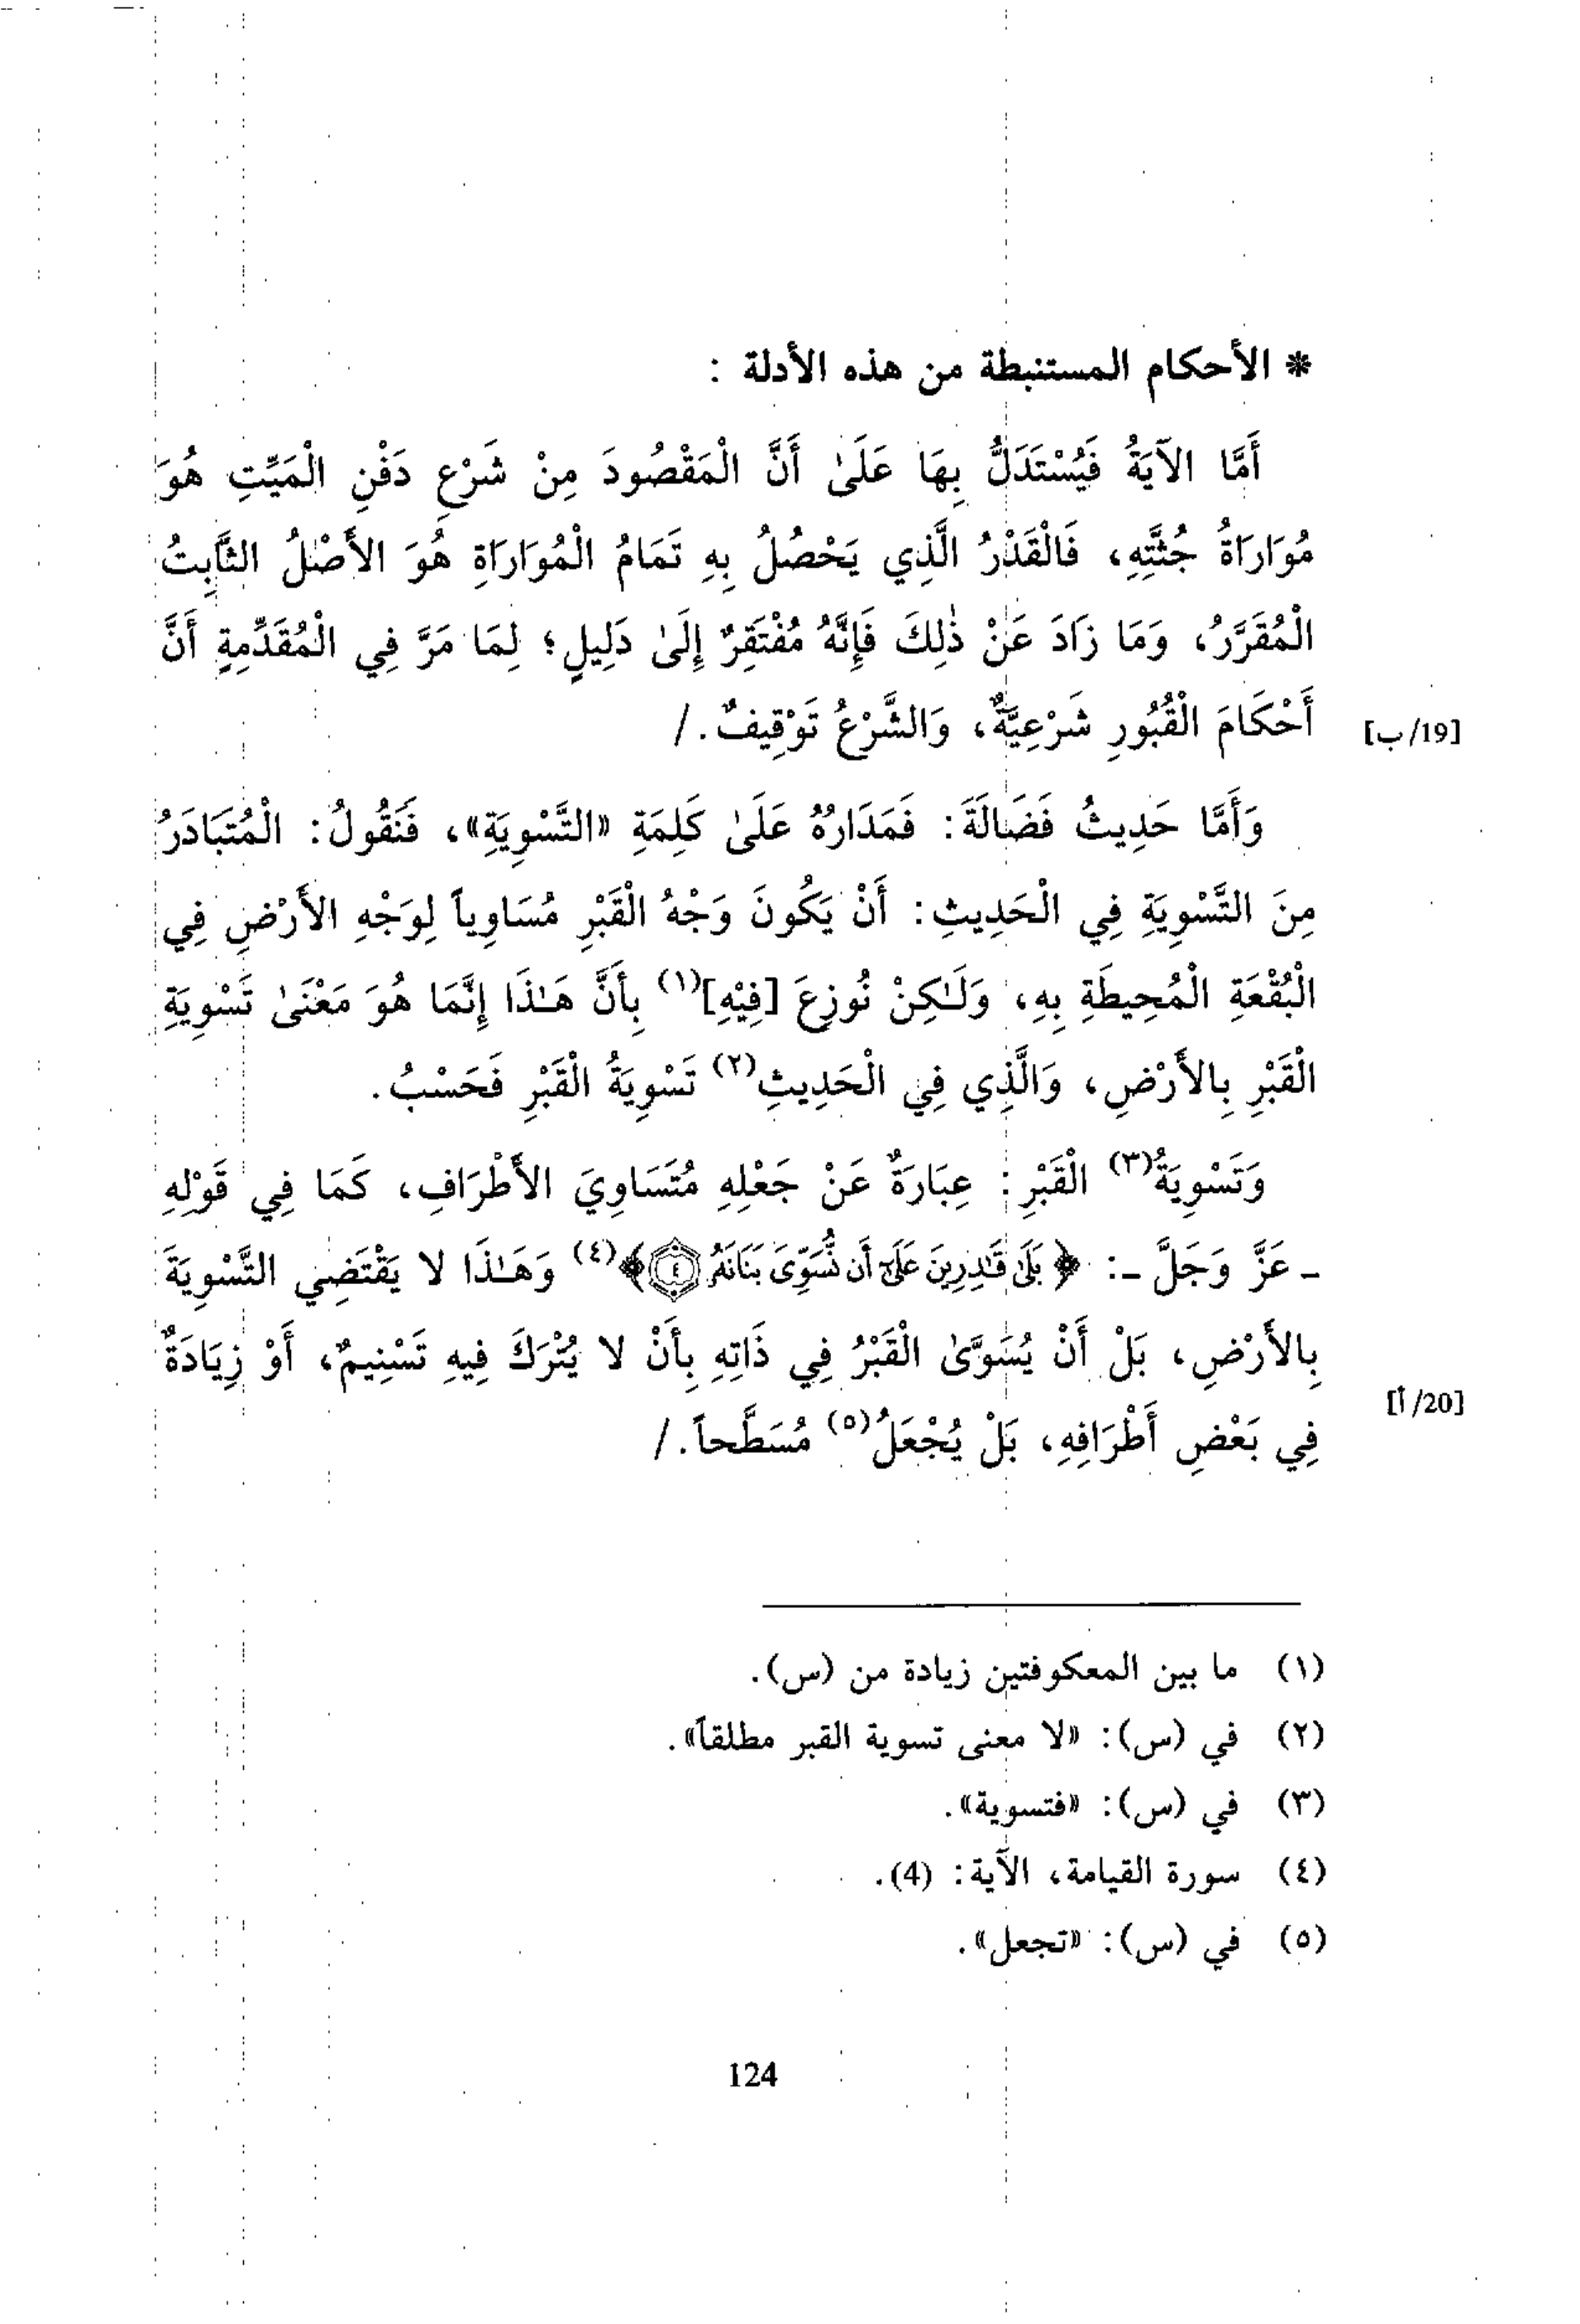 * الأحكام المستنبطة من هذه الأدلة :
أَمَّا الآيَةُ فَيُسْتَدَلُّ بِهَا عَلَىٰ أَنَّ الْمَقْصُودَ مِنْ شَرْعِ دَفْنِ الْمَيِّتِ هُوَ
مُوَارَاةُ جُثَّتِهِ، فَالْقَدْرُ الَّذِي يَحْصُلُ بِهِ تَمَامُ الْمُوَارَاةِ هُوَ الأَصْلُ الثَّابِتُ
الْمُقَرَّرُ، وَمَا زَادَ عَنْ ذٰلِكَ فَإِنَّهُ مُفْتَقِرٌ إِلَىٰ دَلِيلٍ؛ لِمَا مَرَّ فِي الْمُقَدِّمِةِ أَنَّ
أَحْكَامَ الْقُبُورِ شَرْعِيَّةٌ، وَالشَّرْعُ تَوْقِيفٌ. /
[19/ب]
وَأَمَّا حَدِيثُ فَضَالَةَ: فَمَدَارُهُ عَلَىٰ كَلِمَةِ «التَّسْوِيَةِ»، فَنَقُولُ: الْمُتَبَادَرُ
مِنَ التَّسْوِيَةِ فِي الْحَدِيثِ: أَنْ يَكُونَ وَجْهُ الْقَبْرِ مُسَاوِياً لِوَجْهِ الأَرْضِ فِي
الْبُقْعَةِ الْمُحِيطَةِ بِهِ، وَلَـٰكِنْ نُوزِعَ [فِيْهِ](١) بِأَنَّ هَـٰذَا إِنَّمَا هُوَ مَعْنَىٰ تَسْوِيَةِ
الْقَبْرِ بِالأَرْضِ، وَالَّذِي فِي الْحَدِيثِ(٢) تَسْوِيَةُ الْقَبْرِ فَحَسْبُ.
وَتَسْوِيَةُ(٣) الْقَبْرِ: عِبَارَةٌ عَنْ جَعْلِهِ مُتَسَاوِيَ الأَطْرَافِ، كَمَا فِي قَوْلِهِ
ـ عَزَّ وَجَلَّ ـ: ﴿بَلَىٰ قَـٰدِرِينَ عَلَىٰٓ أَن نُّسَوِّىَ بَنَانَهُۥ ٤﴾(٤) وَهَـٰذَا لا يَقْتَضِي التَّسْوِيَةَ
بِالأَرْضِ، بَلْ أَنْ يُسَوَّىٰ الْقَبْرُ فِي ذَاتِهِ بِأَنْ لا يُتْرَكَ فِيهِ تَسْنِيمٌ، أَوْ زِيَادَةٌ
فِي بَعْضِ أَطْرَافِهِ، بَلْ يُجْعَلُ(٥) مُسَطَّحاً. /
[20/أ]
(١) ما بين المعكوفتين زيادة من (س).
(٢) في (س): «لا معنى تسوية القبر مطلقاً».
(٣) في (س): «فتسوية».
(٤) سورة القيامة، الآية: (4).
(٥) في (س): «تجعل».
124